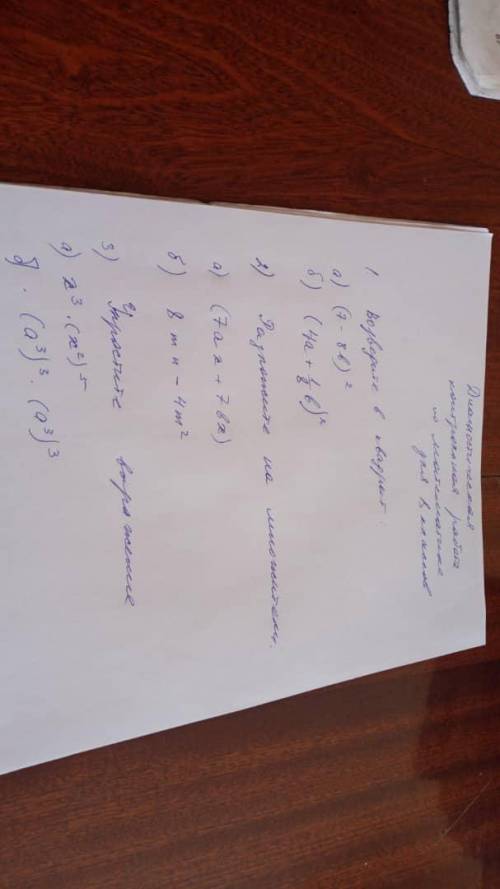 Диагностическая
контрольная работа
по математике
для 8 классов
1 Возведите в квадрат:
а) (7 - 8b)²
б) (4a + ⅛b)²
2) Разложите на множители.
а) (7ax + 7bx)
б) 8mn - 4m²
3) Упростите выражение
а) x³ · (x²)⁵
б) · (a³)³ · (a³)³